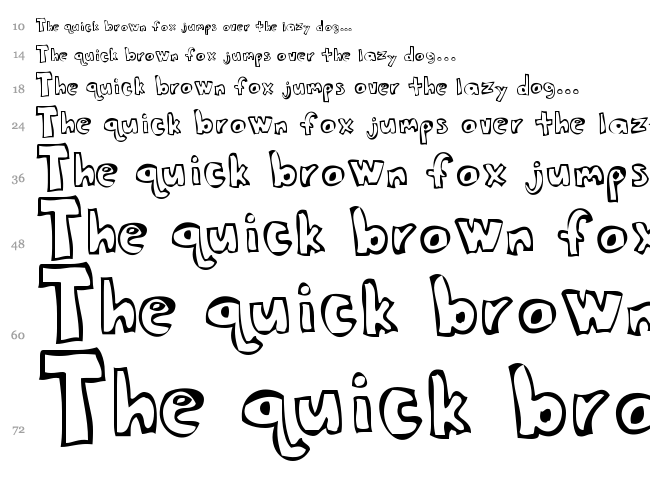 10 The quick brown fox jumps over the lazy dog...
14 The quick brown fox jumps over the lazy dog...
18 The quick brown fox jumps over the lazy dog...
24 The quick brown fox jumps over the laz
36 The quick brown fox jumps
48 The quick brown fox
60 The quick brown
72 The quick bro